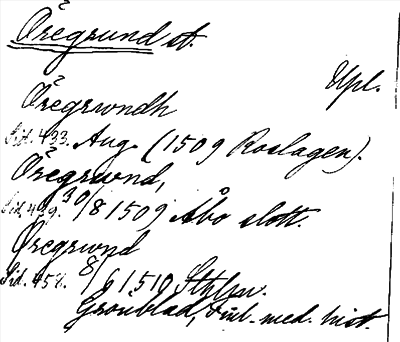 Öregrund st.
Upl.
Öregrwndh
Sid. 433. Aug. (1509 Roslagen).
Öregrwnd,
Sid. 439. 30/8 1509 Åbo slott.
Øregrwnd
Sid. 458. 8/6 1510 Sthlm.
Grönblad, Finl. med. hist.